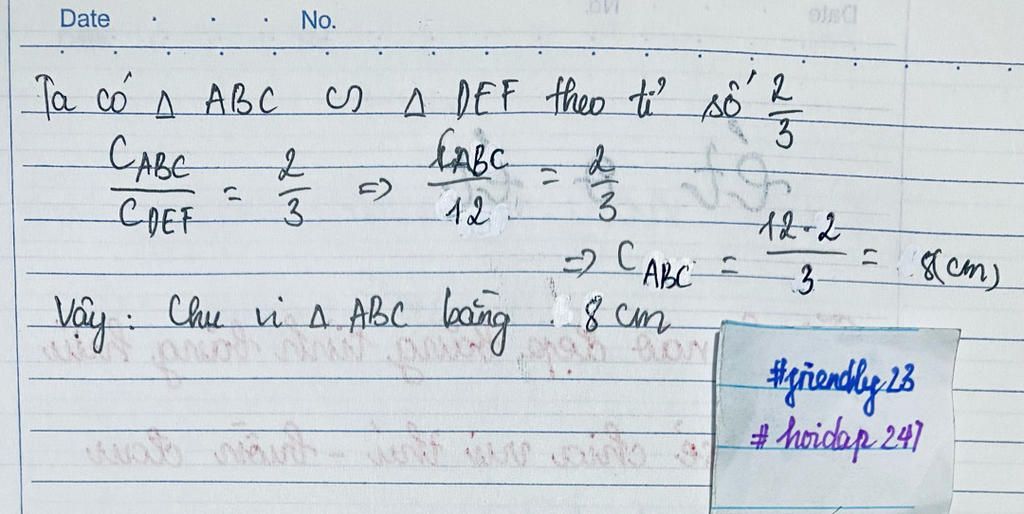 Date No.
Ta có Δ ABC ∽ Δ DEF theo tỉ số 2/3
C_ABC/C_DEF = 2/3 => C_ABC/12 = 2/3
=> C_ABC = 12.2/3 = 8(cm)
Vậy: Chu vi Δ ABC bằng 8 cm
#friendly23
# hoidap 247